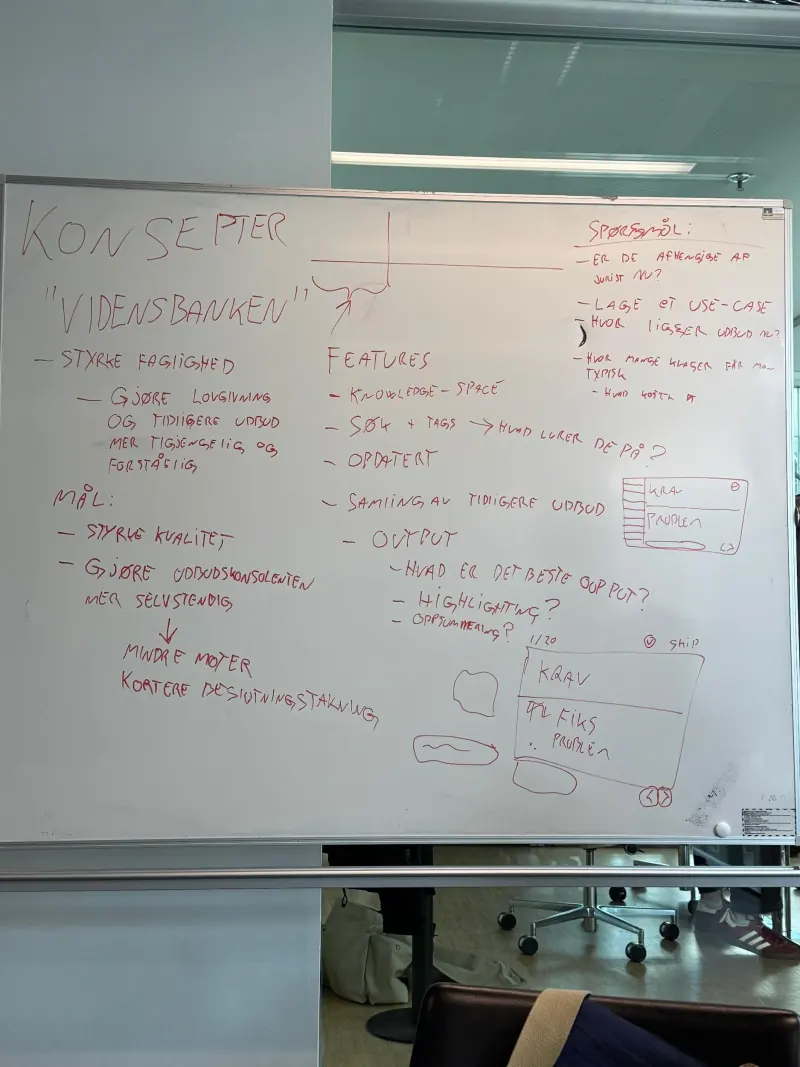 KONSEPTER
"VIDENSBANKEN"
- STYRKE FAGLIGHED
- GJØRE LOVGIVNING
OG TIDLIGERE UDBUD
MER TIGJENGELIG OG
FORSTÅELIG
MÅL:
- STYRKE KVALITET
- GJØRE UDBUDSKONSOLENTEN
MER SELVSTENDIG
↓
MINDRE MØTER
KORTERE BESLUTNINGSTAKNING
FEATURES
- KNOWLEDGE-SPACE
- SØK + TAGS → HVAD LURER DE PÅ?
- OPDATERT
- SAMLING AV TIDLIGERE UDBUD
- OUTPUT
- HVAD ER DET BESTE OUPPUT?
- HIGHLIGHTING?
- OPPSUMMERING?
SPØRGSMÅL:
- ER DE AFHENGIGE AF
JURIST NU?
- LAGE et USE-CASE
- HVOR LIGGER UDBUD NU?
- HVOR MANGE KLAGER FÅR MA-
TYPISK
- HVAD KOSTER
KRAV
PROBLEM
<>
1/20
skip
KRAV
FIKS
PROBLEM
< >